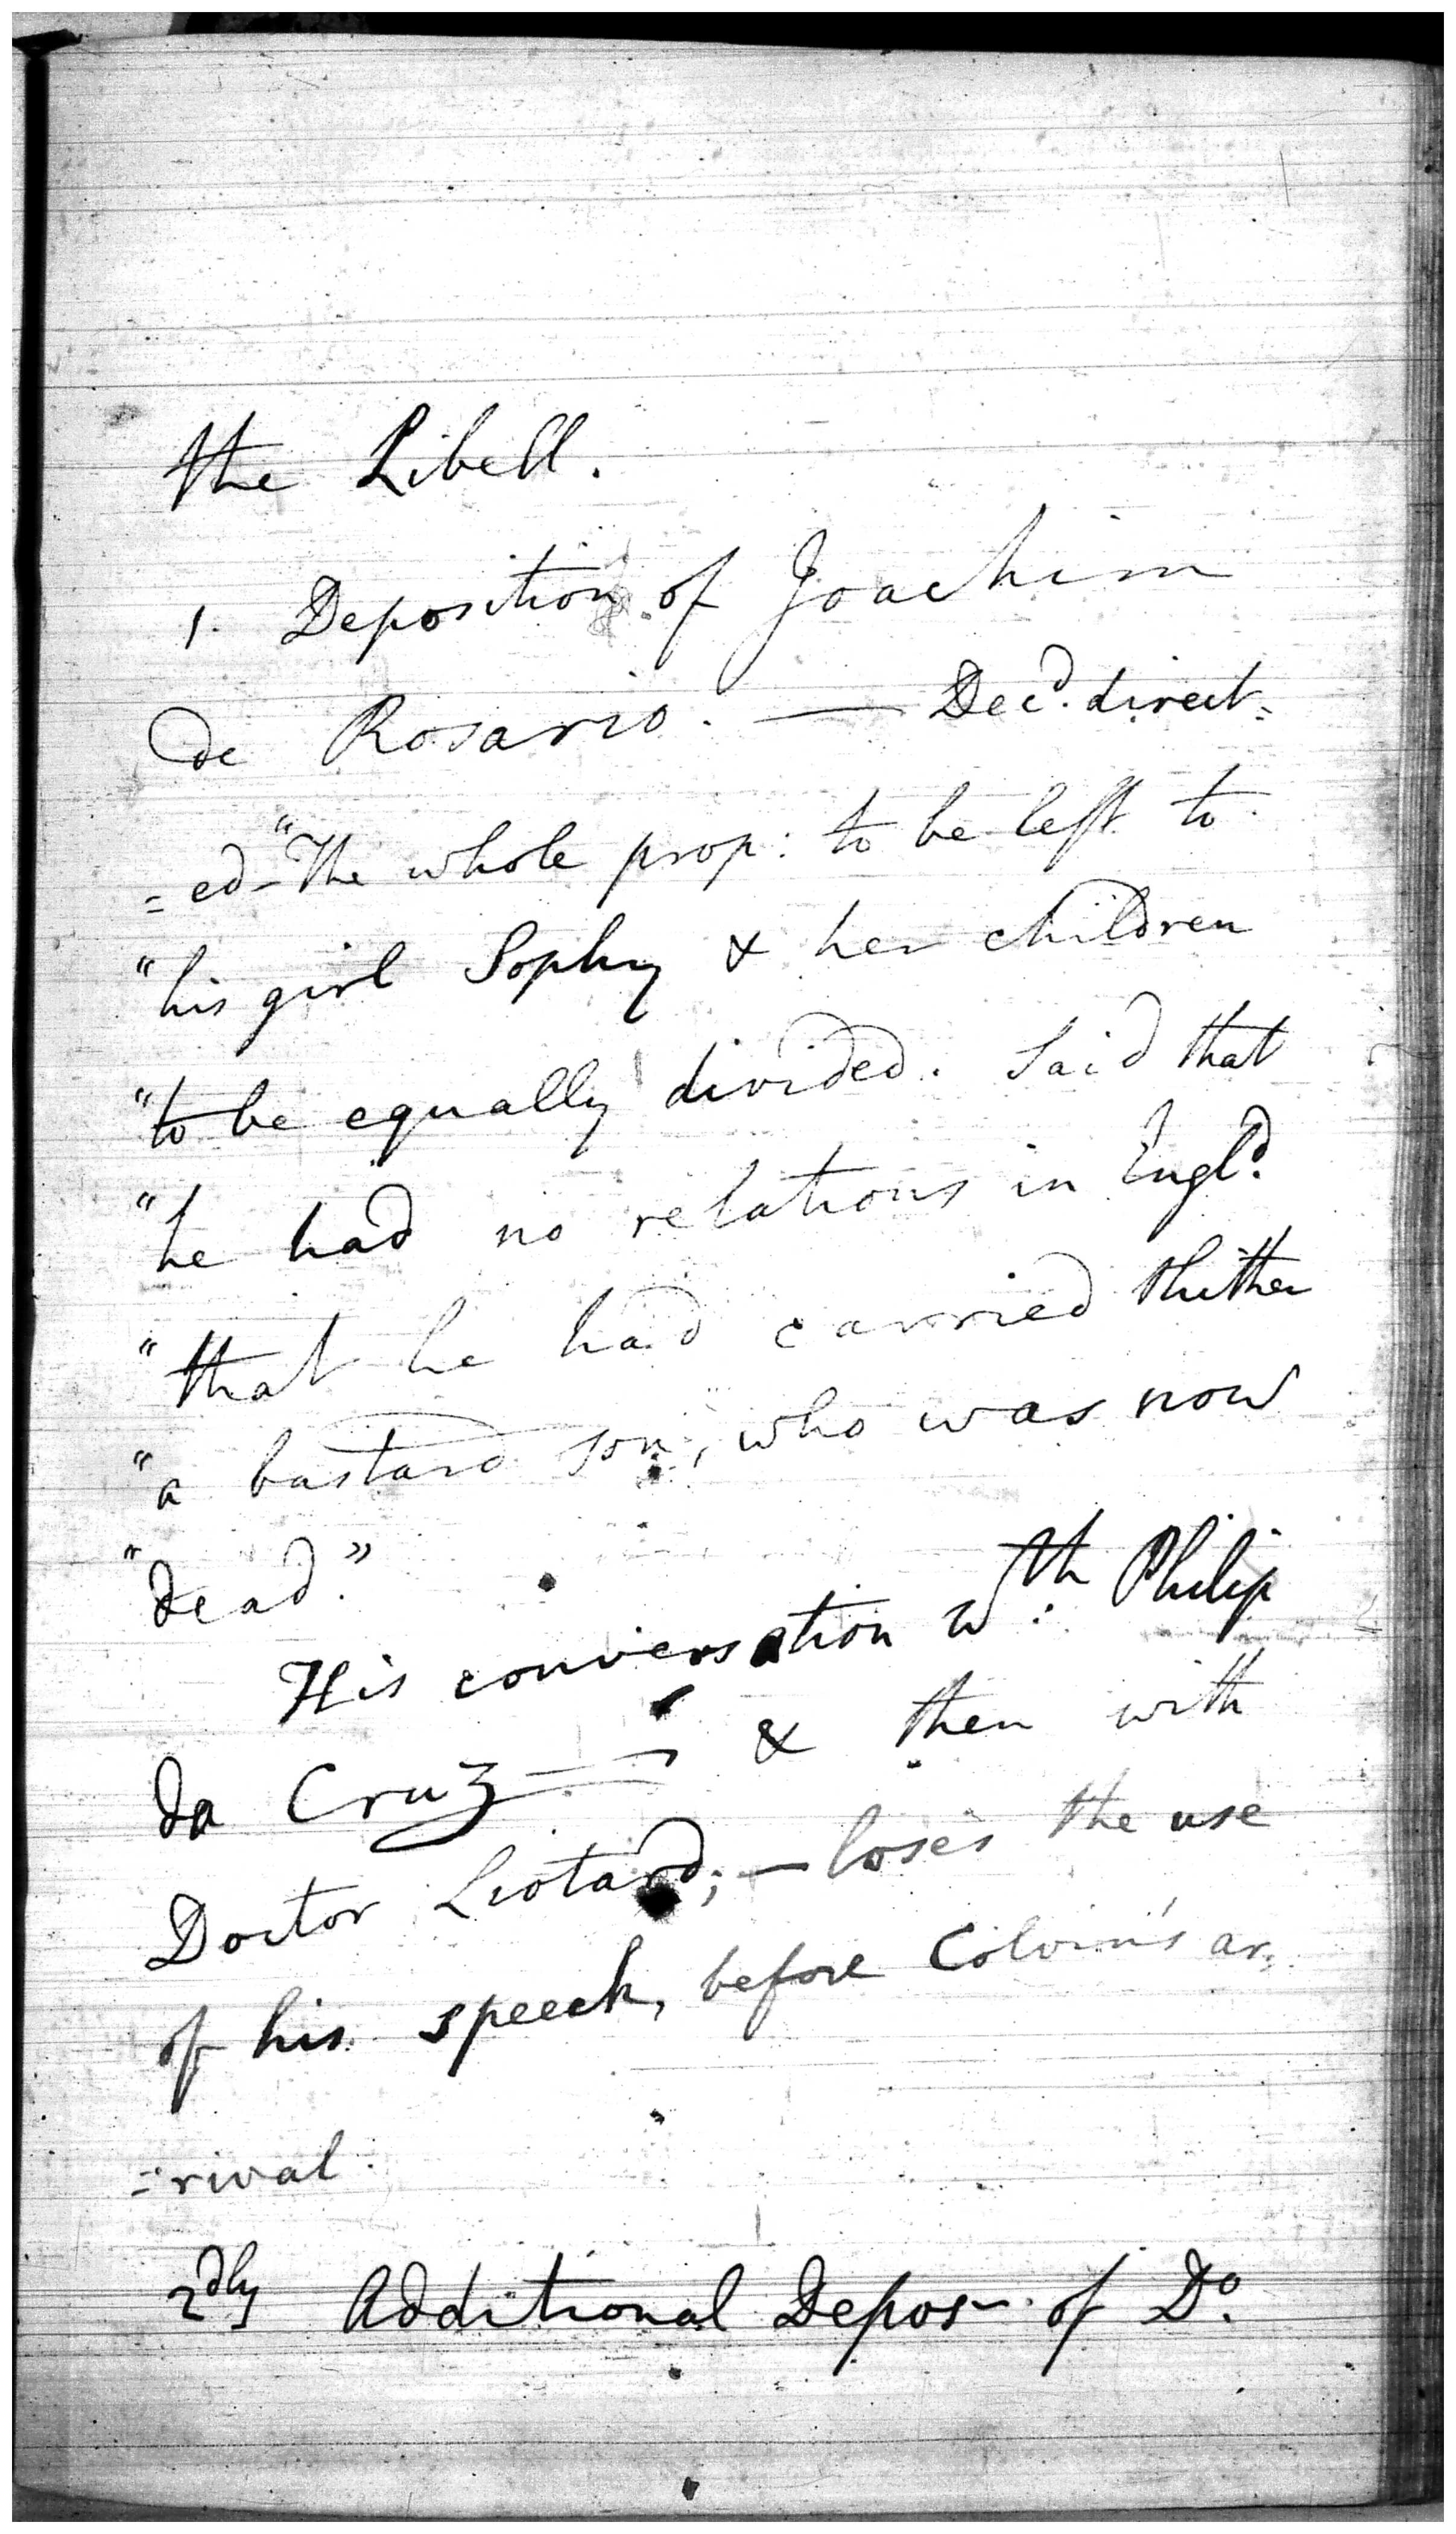 the Libell.
1. Deposition of Joachim
de Rosario. — Decd. direct=
=ed - "The whole prop: to be left to
"his girl Sophy & her children
"to be equally divided. Said that
"he had no relations in Engld.
"that he had carried thither
"a bastard son, who was now
"dead."
His conversation wth: Philip
da Cruz — & then with
Doctor Liotard; — loses the use
of his speech, before Colvin's ar=
=rival.
2dly Additional Deposn. of Do.